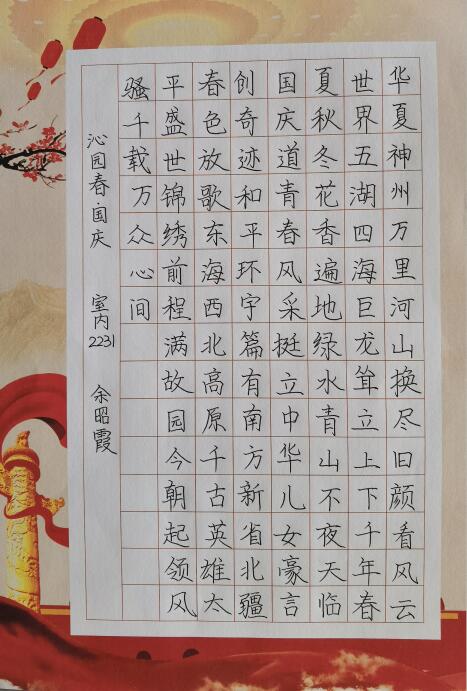 华夏神州万里河山换尽旧颜看风云
世界五湖四海巨龙耸立上下千年春
夏秋冬花香遍地绿水青山不夜天临
国庆道青春风采挺立中华儿女豪言
创奇迹和平环宇篇有南方新省北疆
春色放歌东海西北高原千古英雄太
平盛世锦绣前程满故园今朝起领风
骚千载万众心间
沁园春·国庆 室内2231 余昭霞